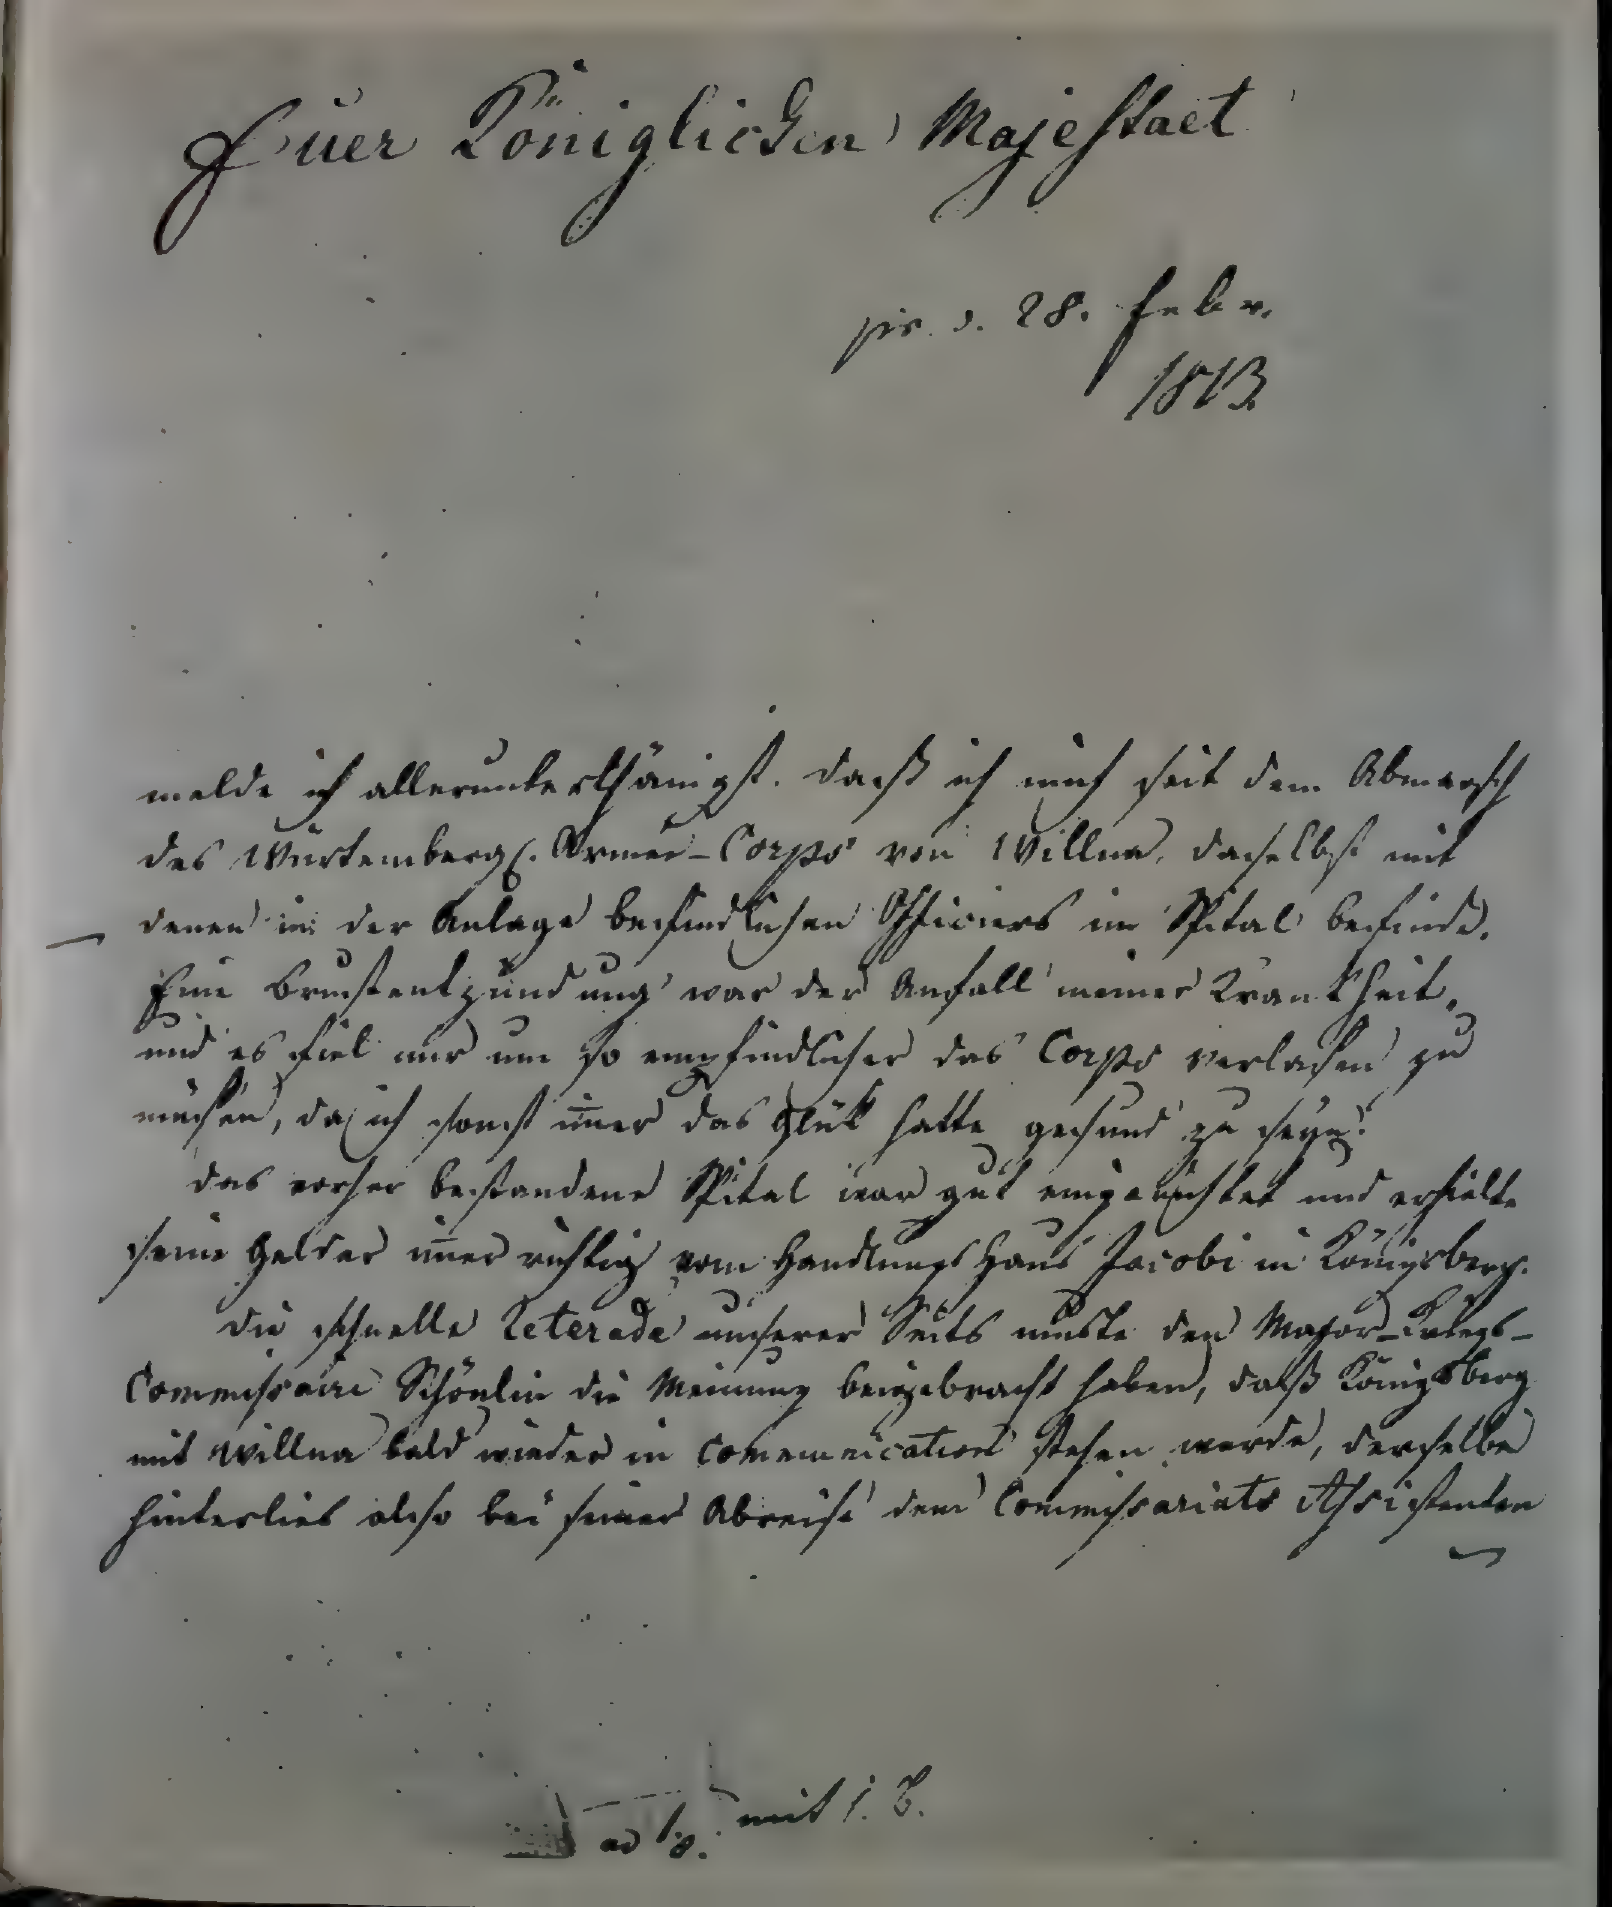 Euer Königlichen Majestaet
pr. d. 28. Febr.
1813.
melde ich allerunterthänigst. daß ich mich seit dem Abmarsch
des Würtembergs. Armée-Corps von Willna, daselbst mit
denen in der Anlage befindlichen Officiers im Spital befinde.
Eine Brustentzündung war der Anfall meiner Krankheit,
und es fiel mir um so empfindlicher das Corps verlassen zu
müssen, da ich sonst im̅er das Glük hatte gesund zu seyn.
Das vorher bestandene Spital war gut eingerichtet und erhielte
seine Gelder im̅er richtig vom Handlungs Haus Jacobi in Königsberg.
Die schnelle Reterade unserer Seits muste den Major-Kriegs-
Commissaire Schönlin die Meinung beigebracht haben, daß Königsberg
mit Willna bald wieder in Communication stehen werde, derselbe
hinterlies also bei seiner Abreise dem Commissariats Assistenten
mit 1. B.